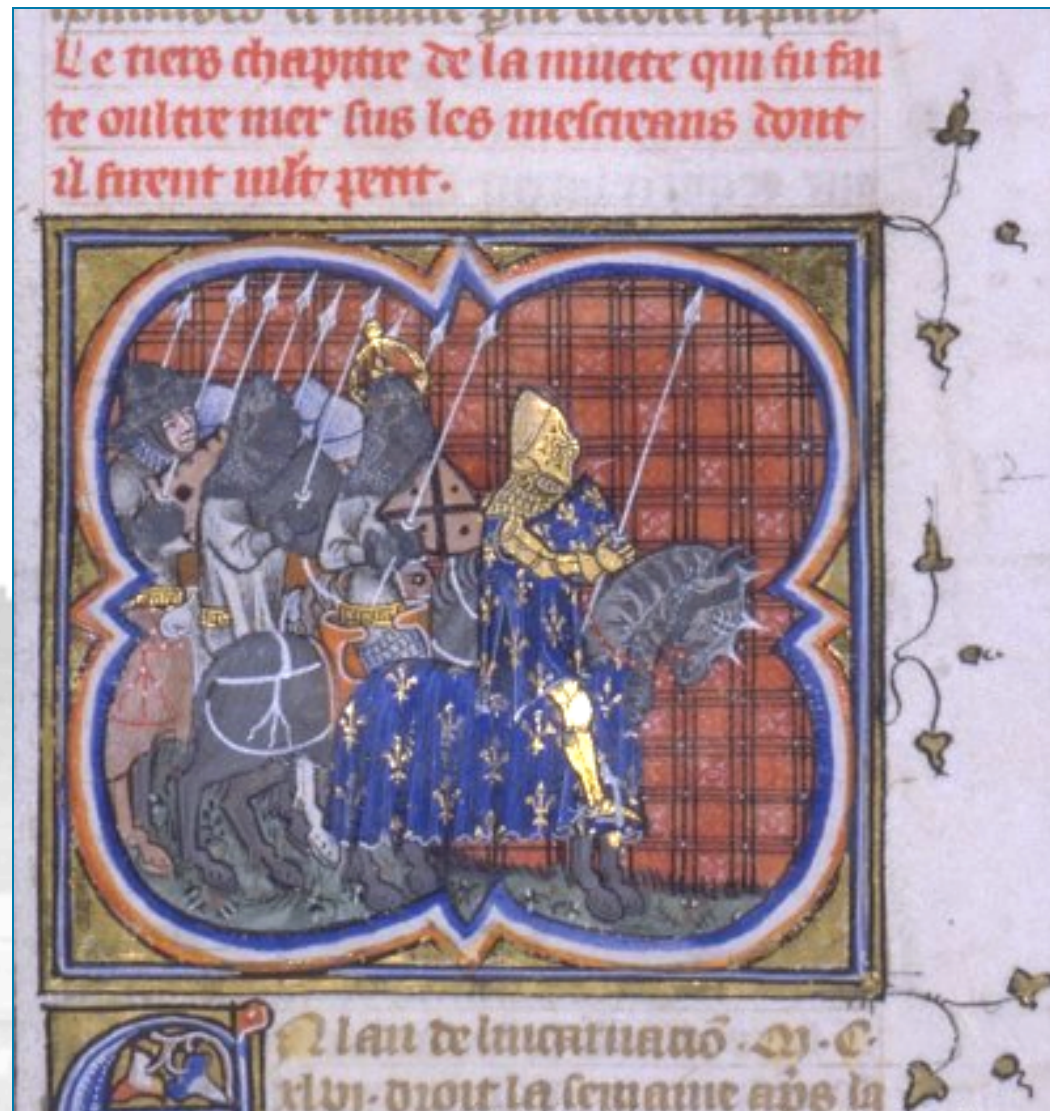 Le tiers chapitre de la muete qui fu fai
te oultre mer sus les mescreans dont
il furent mlt petit.
En lan de lincarnaciõ .M.C.
xlvi. droit la semaine aps la